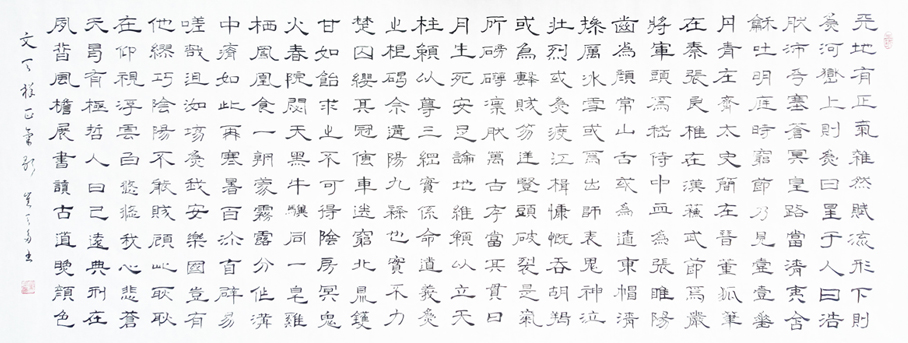 天地有正氣雜然賦流形下則
為河嶽上則為日星于人曰浩
然沛乎塞蒼冥皇路當清夷含
龢吐明庭時窮節乃見壹壹垂
丹青在齊太史簡在晉董狐筆
在秦張良椎在漢蘇武節為嚴
將軍頭為嵇侍中血為張睢陽
齒為顏常山舌或為遼東帽清
操厲冰雪或為出師表鬼神泣
壯烈或為渡江楫慷慨吞胡羯
或為擊賊笏逆豎頭破裂是氣
所磅礴凜然萬古存當其貫日
月生死安足論地維賴以立天
柱賴以尊三綱實係命道義為
之根嗟余遘陽九隸也實不力
楚囚纓其冠傳車送窮北鼎鑊
甘如飴求之不可得陰房冥鬼
火春院閟天黑牛驥同一皂雞
栖鳳凰食一朝蒙霧露分作溝
中瘠如此再寒暑百沴自辟易
嗟哉沮洳場為我安樂國豈有
他繆巧陰陽不能賊顧此耿耿
在仰視浮雲白悠悠我心悲蒼
天曷有極哲人日已遠典刑在
夙昔風檐展書讀古道照顏色
文天祥正氣歌 書